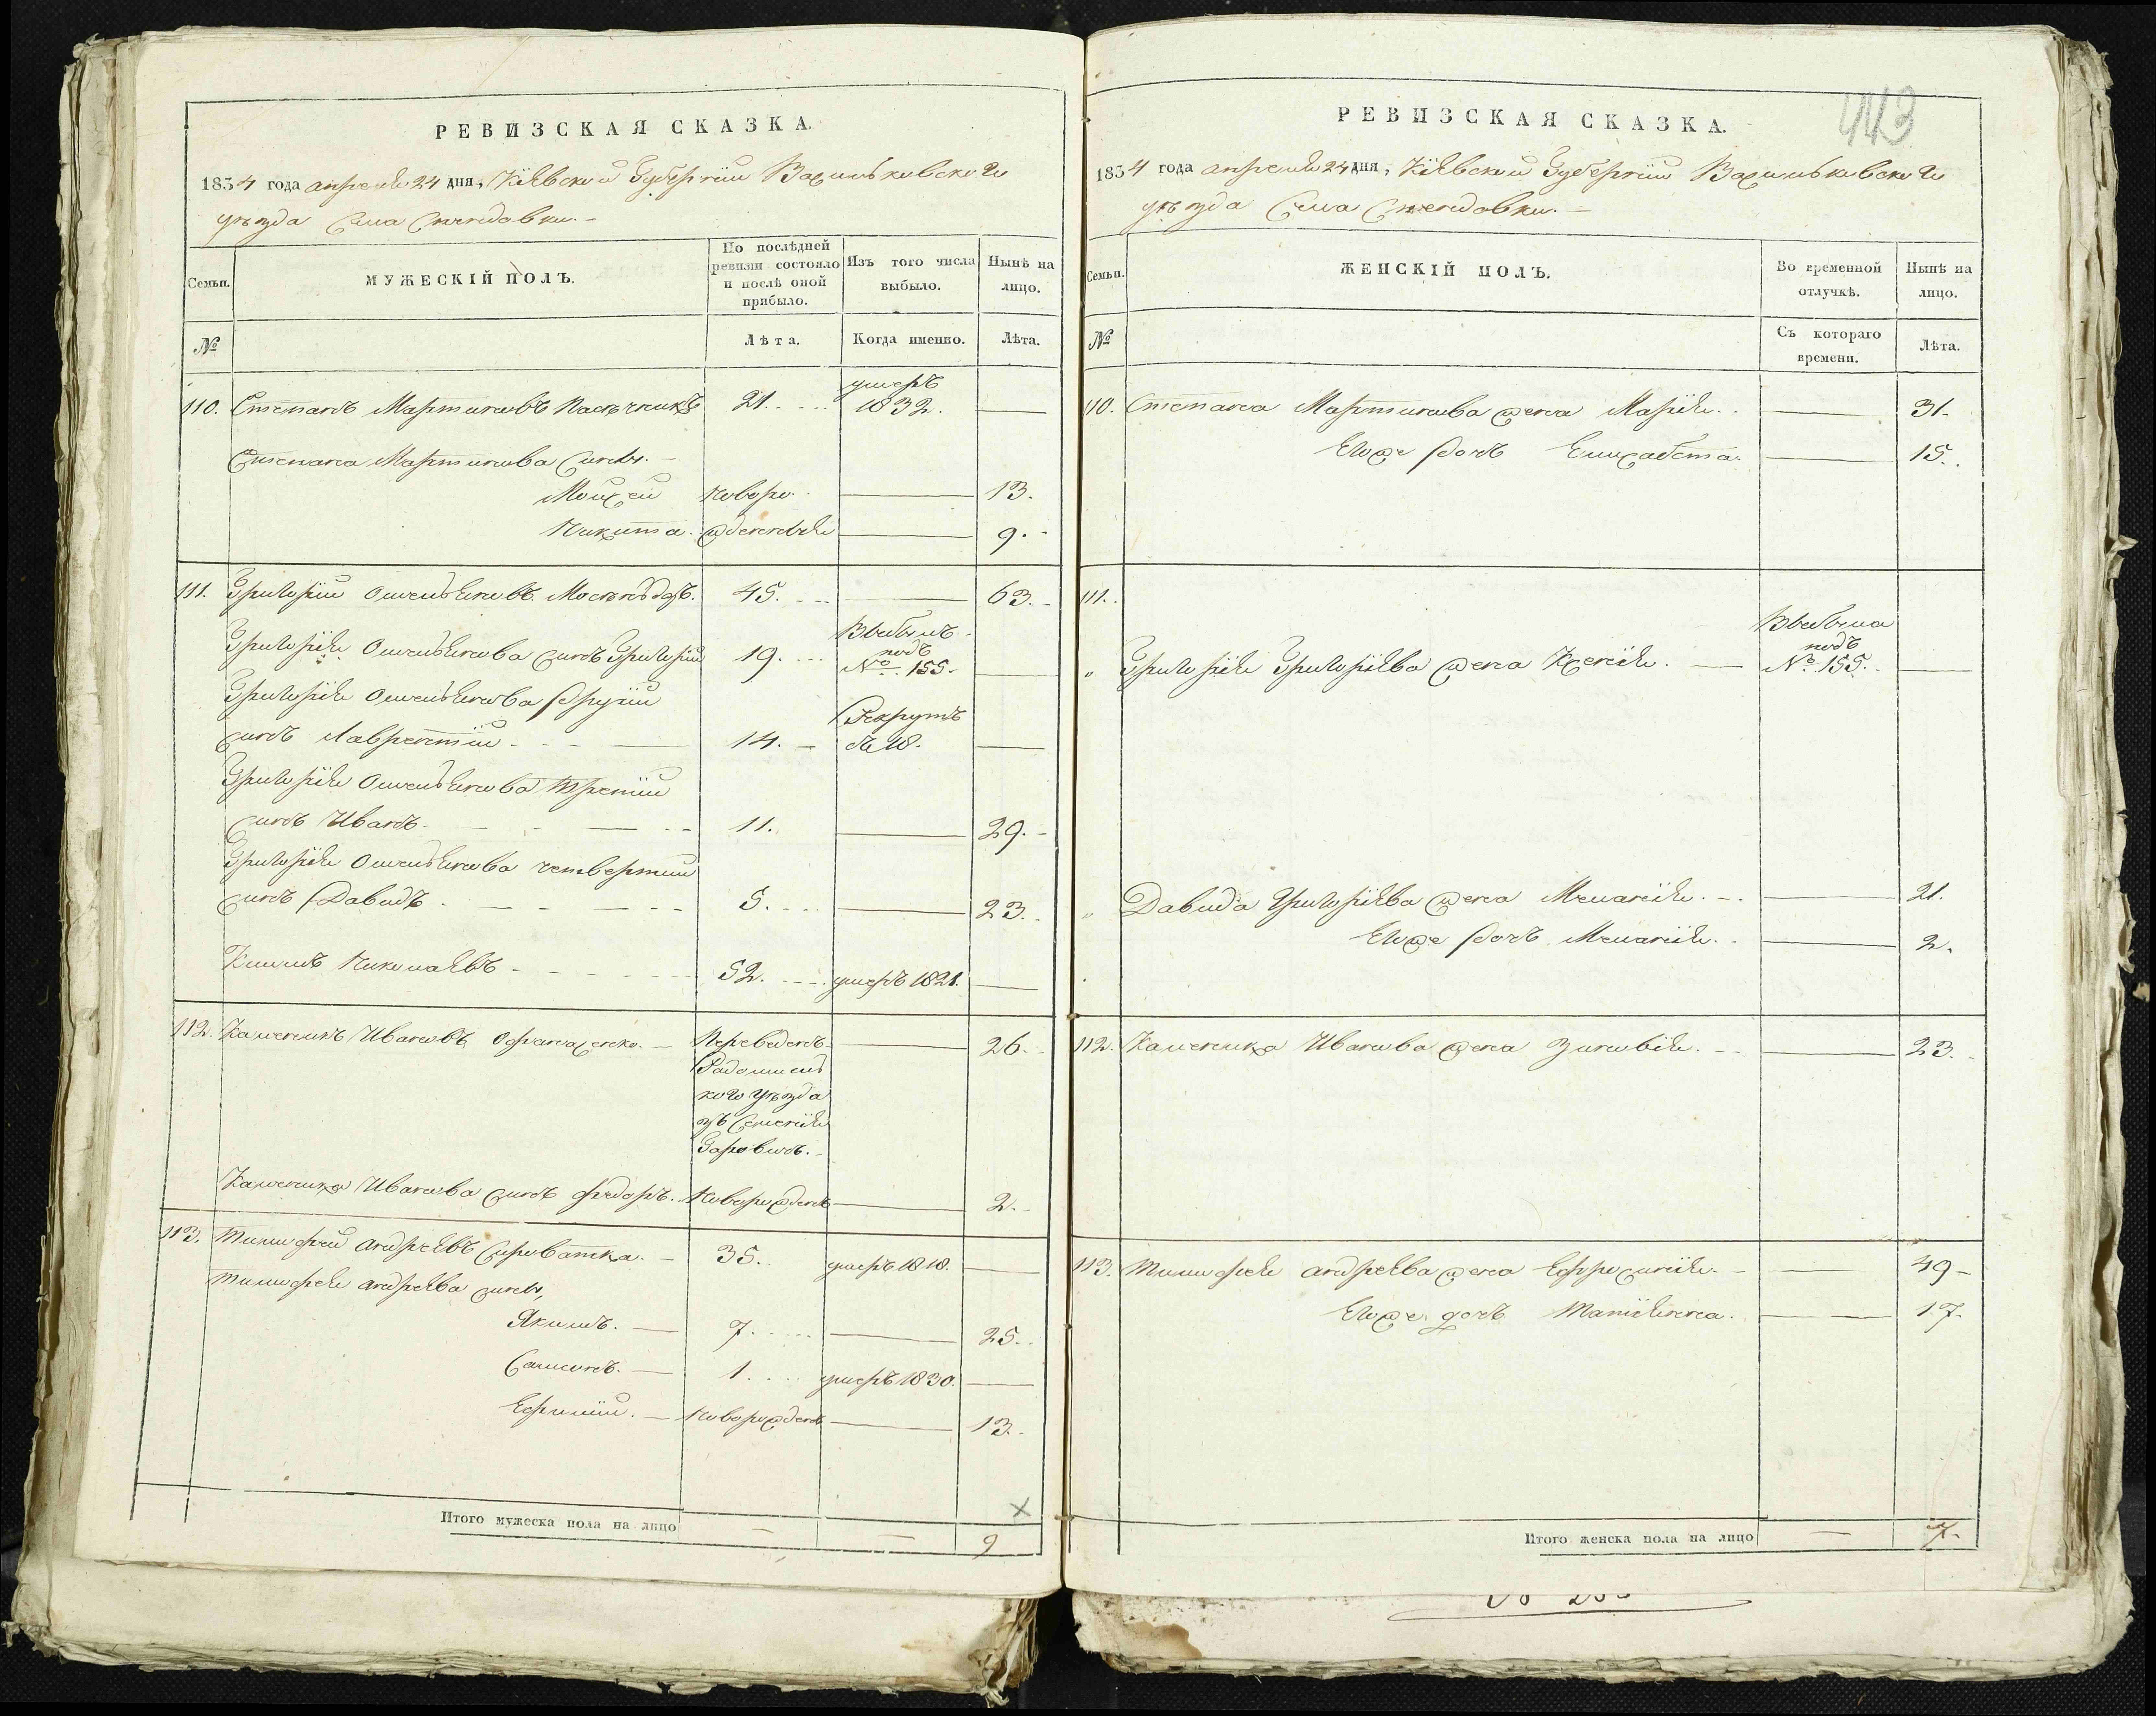 РЕВИЗСКАЯ СКАЗКА.
1834 года апреля 24 дня, Кіевской Губерніи Васильковского
уѣзда Села
Семьи.
МУЖЕСКІЙ ПОЛЪ.
По послѣдней ревизіи состояло и послѣ оной прибыло.
Изъ того числа выбыло.
Нынѣ на лицо.
№
Лѣта.
Когда именно.
Лѣта.
110. Степанъ Мартиновъ 21. умеръ 1832. —
Степана Мартинова сины. —
Мойсей новоро- — 13.
Никита. жденныя — 9.
111. Григорій Омельяновъ 45. — 63.
Григорія Омельянова синъ Григорій 19. Выбылъ подъ № 155. —
Григорія Омельянова другій
синъ Лаврентій 14. Рекрутъ —
Григорія Омельянова третій
синъ Иванъ. 11. — 29.
Григорія Омельянова четвертий
синъ Давидъ. 5. — 23.
Климъ Николаевъ 52. умеръ 1821. —
112. Ивановъ — Переведенъ — 26.
Радомисль
кого уѣзда
зъ Селенія
Иванова синъ Федоръ. Новорожденъ — 2.
113. Тимофей Андреевъ Сироватка. — 35. умеръ 1818. —
Тимофея Андреева сины,
Якимъ. — 7. — 25.
Самсонъ. — 1. умеръ 1830. —
Ефимій. — Новорожденъ — 13.
Итого мужеска пола на лицо — — 9
443
РЕВИЗСКАЯ СКАЗКА.
1834 года апреля 24 дня, Кіевской Губерніи Васильковского
уѣзда Села
Семьи.
ЖЕНСКІЙ ПОЛЪ.
Во временной отлучкѣ.
Нынѣ на лицо.
№
Съ котораго времени.
Лѣта.
110. Степана Мартинова жена Марія. — 31.
Егоже дочь Елисабета. — 15.
111.
„ Григорія Григоріева жена Ксенія. — Выбыла подъ № 155. —
„ Давида Григоріева жена Меланія. — 21.
Егоже дочь Меланія. — 2.
112. Иванова жена Зиновія. — 23.
113. Тимофея Андреева жена Ефросинія. — 49
Егоже дочь Татіянна. — 17.
Итого женска пола на лицо — 7.